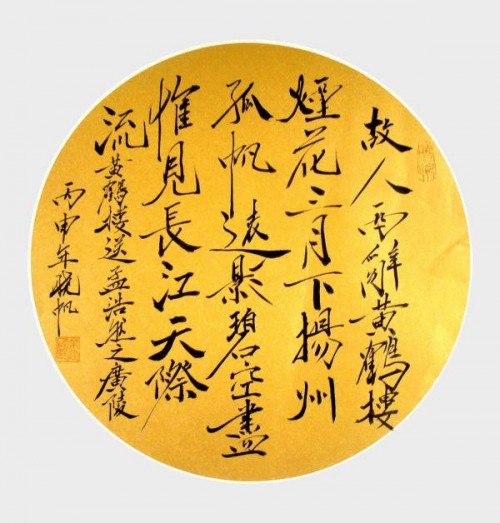 故人西辭黄鶴樓
煙花三月下揚州
孤帆遠影碧空盡
惟見長江天際
流 黄鶴樓送孟浩然之廣陵
丙申年晓帆